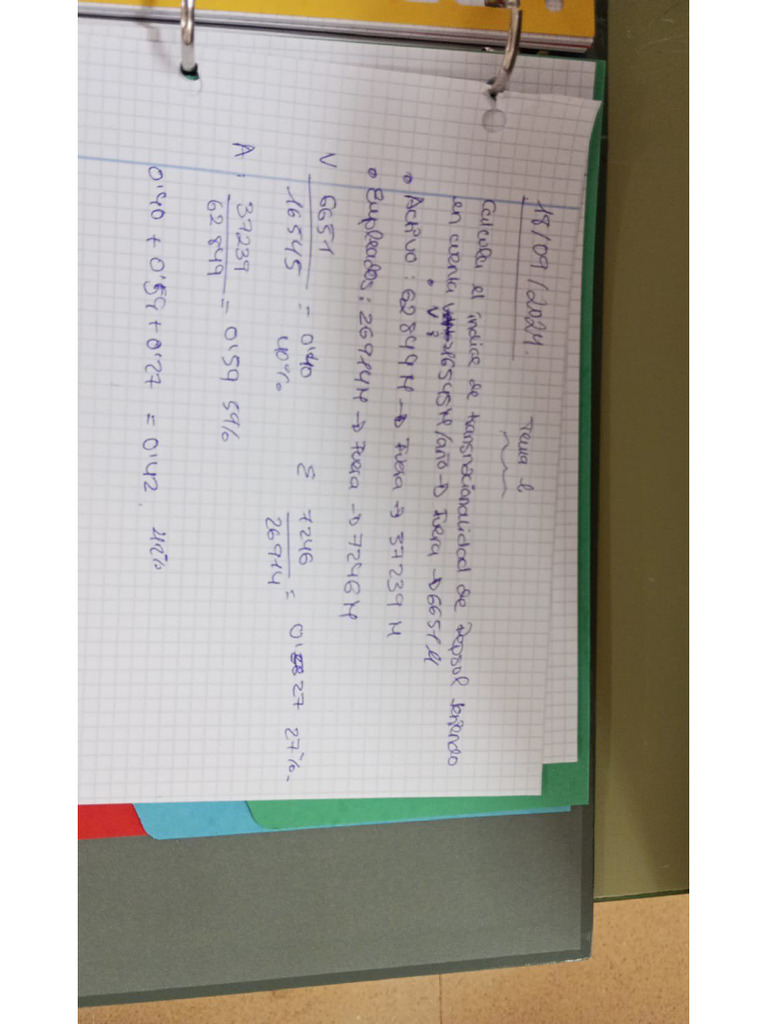 18/09/2024.
Tema 1
Calcula el índice de transnacionalidad de Repsol teniendo
en cuenta
• V: 16545M/año → Fuera → 6651 M
• Activo: 62849M → Fuera → 37239 M
• Empleados: 26914M → Fuera → 7246M
V 6651/16545 = 0'40 40%
E 7246/26914 = 0'27 27%.
A: 37239/62849 = 0'59 59%
0'40 + 0'59 + 0'27 = 0'42. 42%